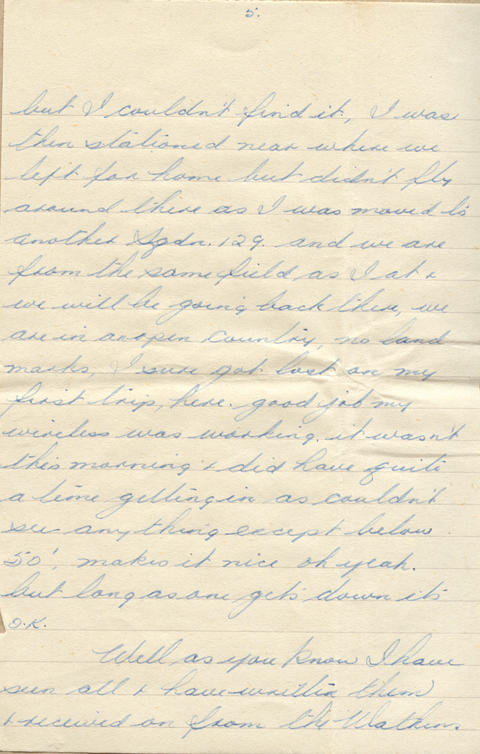 5.
but I couldn't find it, I was
then stationed near where we
left for home but didn't fly
around there as I was moved to
another Sqdn. 129. and we are
from the same field as I at &
we will be going back there, we
are in an open country, no land
marks, I sure got lost on my
first trip, here. good job my
wireless was working, it wasn't
this morning & did have quite
a time getting in as couldn't
see anything except below
50', makes it nice oh yeah.
but long as one gets down it's
O.K.
Well as you know I have
seen all & have written them
& received on from the Watkins.